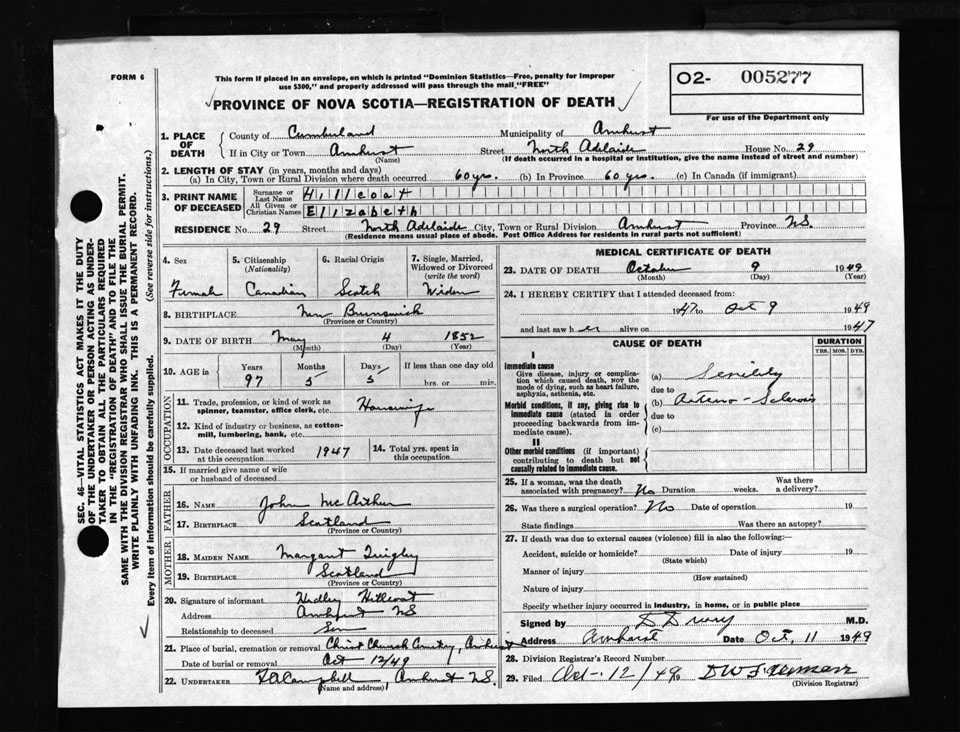 FORM 6
This form if placed in an envelope, on which is printed "Dominion Statistics—Free, penalty for improper
use $300," and properly addressed will pass through the mail "FREE"
O2- 005277
For use of the Department only
PROVINCE OF NOVA SCOTIA—REGISTRATION OF DEATH
1. PLACE OF DEATH
County of Cumberland Municipality of Amherst
If in City or Town Amherst Street North Adelaide House No. 29
(Name) (If death occurred in a hospital or institution, give the name instead of street and number)
2. LENGTH OF STAY (in years, months and days)
(a) In City, Town or Rural Division where death occurred 60 yrs. (b) In Province 60 yrs. (c) In Canada (if immigrant)
3. PRINT NAME OF DECEASED
Surname or Last Name Hillcoat
All Given or Christian Names Elizabeth
RESIDENCE No. 29 Street North Adelaide City, Town or Rural Division Amherst Province NS.
(Residence means usual place of abode. Post Office Address for residents in rural parts not sufficient)
4. Sex
Female
5. Citizenship
(Nationality)
Canadian
6. Racial Origin
Scotch
7. Single, Married,
Widowed or Divorced
(write the word)
Widow
8. BIRTHPLACE New Brunswick
(Province or Country)
9. DATE OF BIRTH May 4 1852
(Month) (Day) (Year)
10. AGE in Years Months Days If less than one day old
97 5 5 hrs. or min.
OCCUPATION
11. Trade, profession, or kind of work as
spinner, teamster, office clerk, etc. Housewife
12. Kind of industry or business, as cotton-
mill, lumbering, bank, etc.
13. Date deceased last worked
at this occupation 1947
14. Total yrs. spent
in this occupation
15. If married give name of wife
or husband of deceased
FATHER
16. NAME John McArthur
17. BIRTHPLACE Scotland
(Province or Country)
MOTHER
18. MAIDEN NAME Margaret Quigley
19. BIRTHPLACE Scotland
(Province or Country)
20. Signature of informant Hedley Hillcoat
Address Amherst NS
Relationship to deceased Son
21. Place of burial, cremation or removal Christ Church Cemetery, Amherst
Date of burial or removal Oct 12/49
22. UNDERTAKER Campbell, Amherst NS.
(Name and address)
MEDICAL CERTIFICATE OF DEATH
23. DATE OF DEATH October 9 1949
(Month) (Day)
24. I HEREBY CERTIFY that I attended deceased from:
1947 to Oct 9 1949
and last saw her alive on 1947
CAUSE OF DEATH
DURATION
YRS. MOS. DYS.
I
Immediate cause
Give disease, injury or complica-
tion which caused death, NOT the
mode of dying, such as heart failure,
asphyxia, asthenia, etc.
(a) Senility
due to
Morbid conditions, if any, giving rise to
immediate cause (stated in order
proceeding backwards from im-
mediate cause).
(b) Arterio-Sclerosis
due to
(c)
II
Other morbid conditions (if important)
contributing to death but not
causally related to immediate cause.
25. If a woman, was the death
associated with pregnancy? No Duration weeks. Was there
a delivery?
26. Was there a surgical operation? No Date of operation 19
State findings Was there an autopsy?
27. If death was due to external causes (violence) fill in also the following:—
Accident, suicide or homicide? Date of injury 19
(State which)
Manner of injury
(How sustained)
Nature of injury
Specify whether injury occurred in industry, in home, or in public place
Signed by D Drury M.D.
Address Amherst Date Oct. 11 1949
28. Division Registrar's Record Number
29. Filed Oct. 12/49 19
(Division Registrar)
SEC. 46—VITAL STATISTICS ACT MAKES IT THE DUTY
OF THE UNDERTAKER OR PERSON ACTING AS UNDER-
TAKER TO OBTAIN ALL THE PARTICULARS REQUIRED
IN THE "REGISTRATION OF DEATH" AND TO FILE THE
SAME WITH THE DIVISION REGISTRAR WHO SHALL ISSUE THE BURIAL PERMIT.
WRITE PLAINLY WITH UNFADING INK. THIS IS A PERMANENT RECORD.
Every item of information should be carefully supplied. (See reverse side for instructions.)